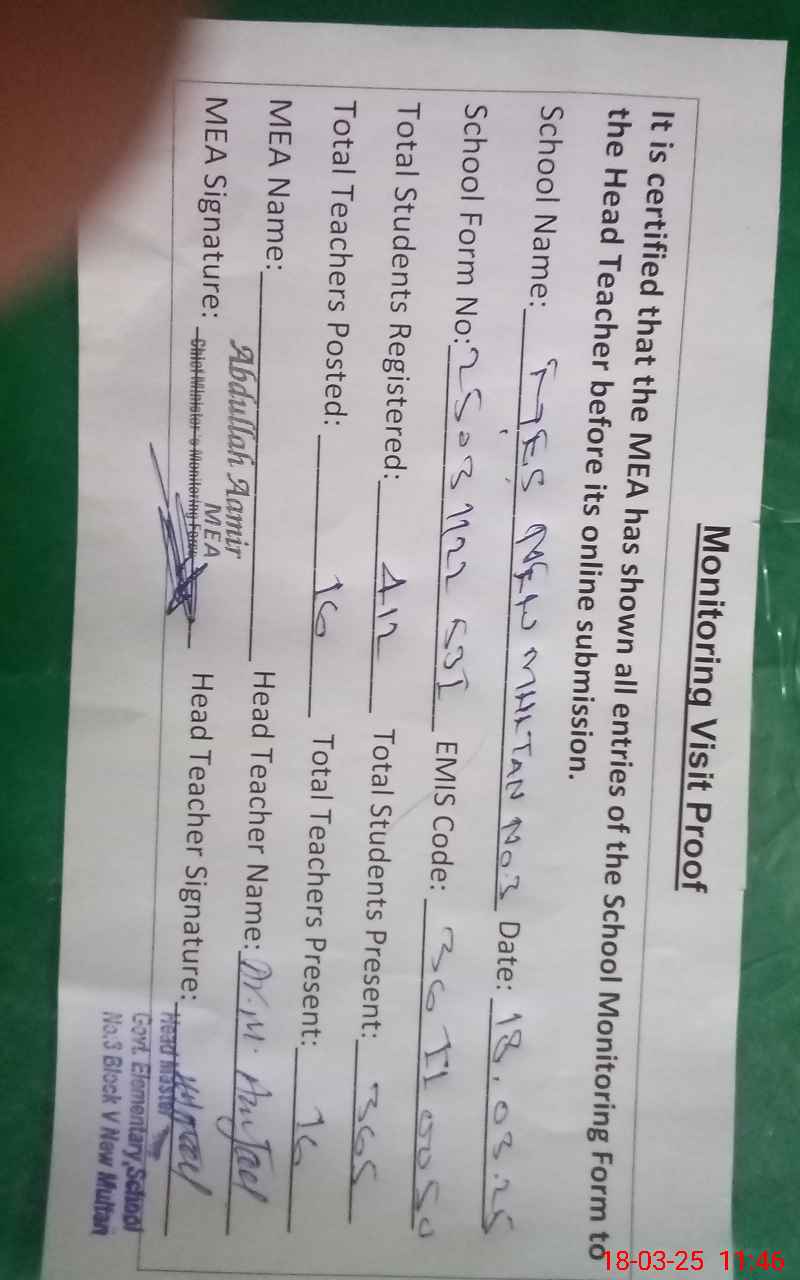 Monitoring Visit Proof
It is certified that the MEA has shown all entries of the School Monitoring Form to
the Head Teacher before its online submission.
School Name: NEW MULTAN No.3 Date: 18.03.25
School Form No: EMIS Code: 36110050
Total Students Registered: 412 Total Students Present: 365
Total Teachers Posted: 16 Total Teachers Present: 16
MEA Name: Abdullah Aamir Head Teacher Name: Dr. M.
MEA
MEA Signature: Chief Minister's Monitoring Force Head Teacher Signature:
Head Master
Govt. Elementary School
No.3 Block V New Multan
18-03-25 11:46